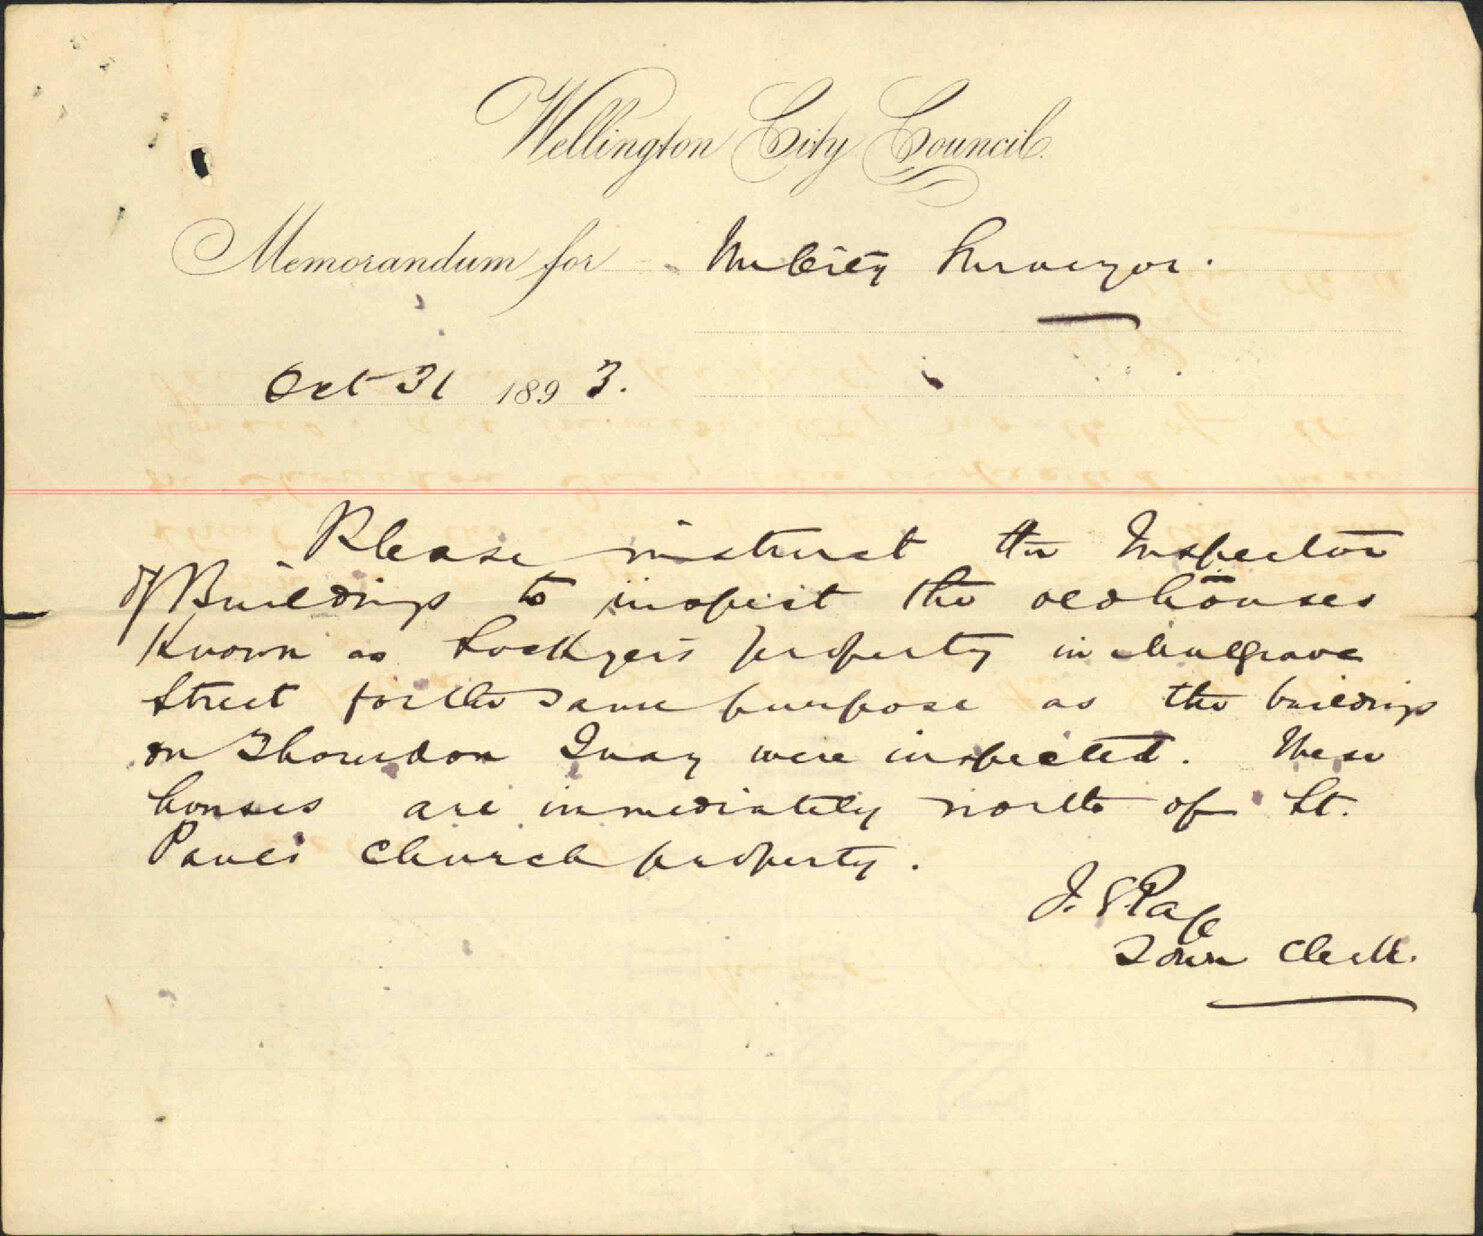 Wellington City Council.
Memorandum for The City Surveyor.
Oct 31 1893.
Please instruct the Inspector
of Buildings to inspect the old houses
known as Lockyer's property in Mulgrave
Street for the same purpose as the buildings
on Thorndon Quay were inspected. These
houses are immediately north of St.
Paul's Church property.
J. S. Page
Town Clerk.